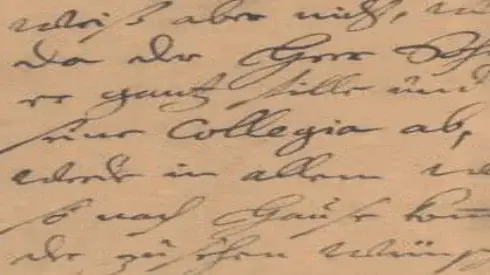 weiß aber nicht,
da der Herr
er gantz stille und
seine Collegia ab,
werde in allem
so nach Hause
der zusehen